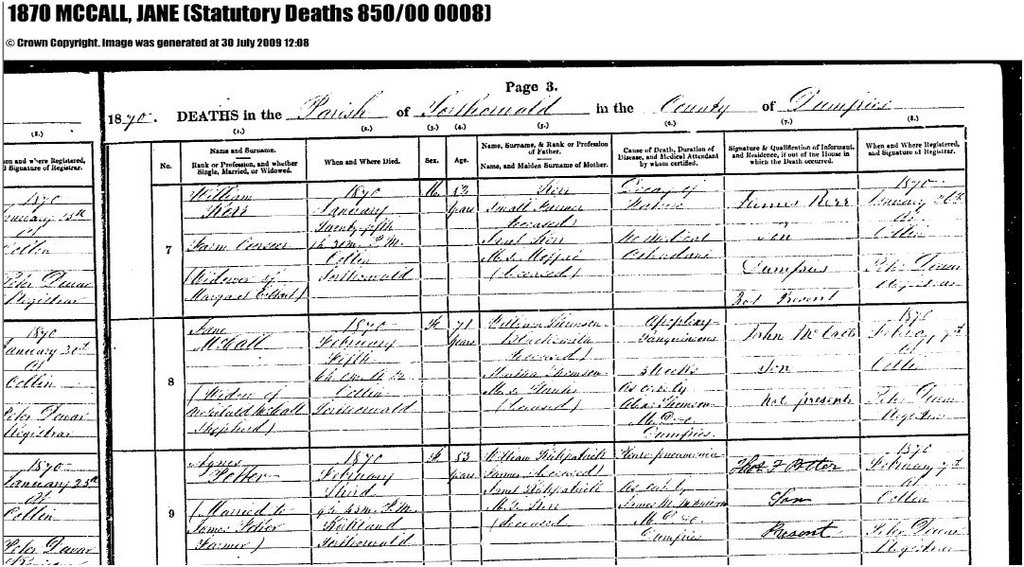 1870 MCCALL, JANE (Statutory Deaths 850/00 0008)
© Crown Copyright. Image was generated at 30 July 2009 12:08
Page 3.
1870. DEATHS in the Parish of Torthorwald in the County of Dumfries
(8.) (1.) (2.) (3.) (4.) (5.) (6.) (7.) (8.)
and where Registered,
Signature of Registrar.
No.
Name and Surname.
Rank or Profession, and whether
Single, Married, or Widowed.
When and Where Died.
Sex.
Age.
Name, Surname, & Rank or Profession
of Father.
Name, and Maiden Surname of Mother.
Cause of Death, Duration of
Disease, and Medical Attendant
by whom certified.
Signature & Qualification of Informant,
and Residence, if out of the House in
which the Death occurred.
When and Where Registered,
and Signature of Registrar.
1870
January 25th
at
Collin
Peter Dewar
Registrar
7
William
Kerr
(Widower of
Margaret
1870
January
Twenty fifth
Collin
Torthorwald
M.
83
Years
Kerr
Small Farmer
(deceased)
Janet Kerr
M.S. Moffat
(deceased)
Decay of
Nature
No Medical
Attendant
James Kerr
Son
Dumfries
Not Present
1870
January 26th
at
Collin
Peter Dewar
Registrar
1870
January 30th
at
Collin
Peter Dewar
Registrar
8
Jane
McCall
(Widow of
McCall
Shepherd)
1870
February
Fifth
Collin
Torthorwald
F.
71
Years
William Thomson
(deceased)
Thomson
M.S.
(deceased)
Apoplexy
Sanguineous
3 Weeks
As cert by
Thomson
M.D.
Dumfries.
John McCall
Son
Not present
1870
February 7th
at
Collin
Peter Dewar
Registrar
1870
January 25th
At
Collin
Peter Dewar
Registrar
9
Agnes
Potter
(Married to
James Potter
Farmer)
1870
February
Third
Kirkland
Torthorwald
F.
53
Years
William Kirkpatrick
Farmer (deceased)
Janet Kirkpatrick
M.S. Kerr
(deceased)
pneumonia
As cert by
James
M.D.
Dumfries
Potter
Son
Present
1870
February 7th
at
Collin
Peter Dewar
Registrar